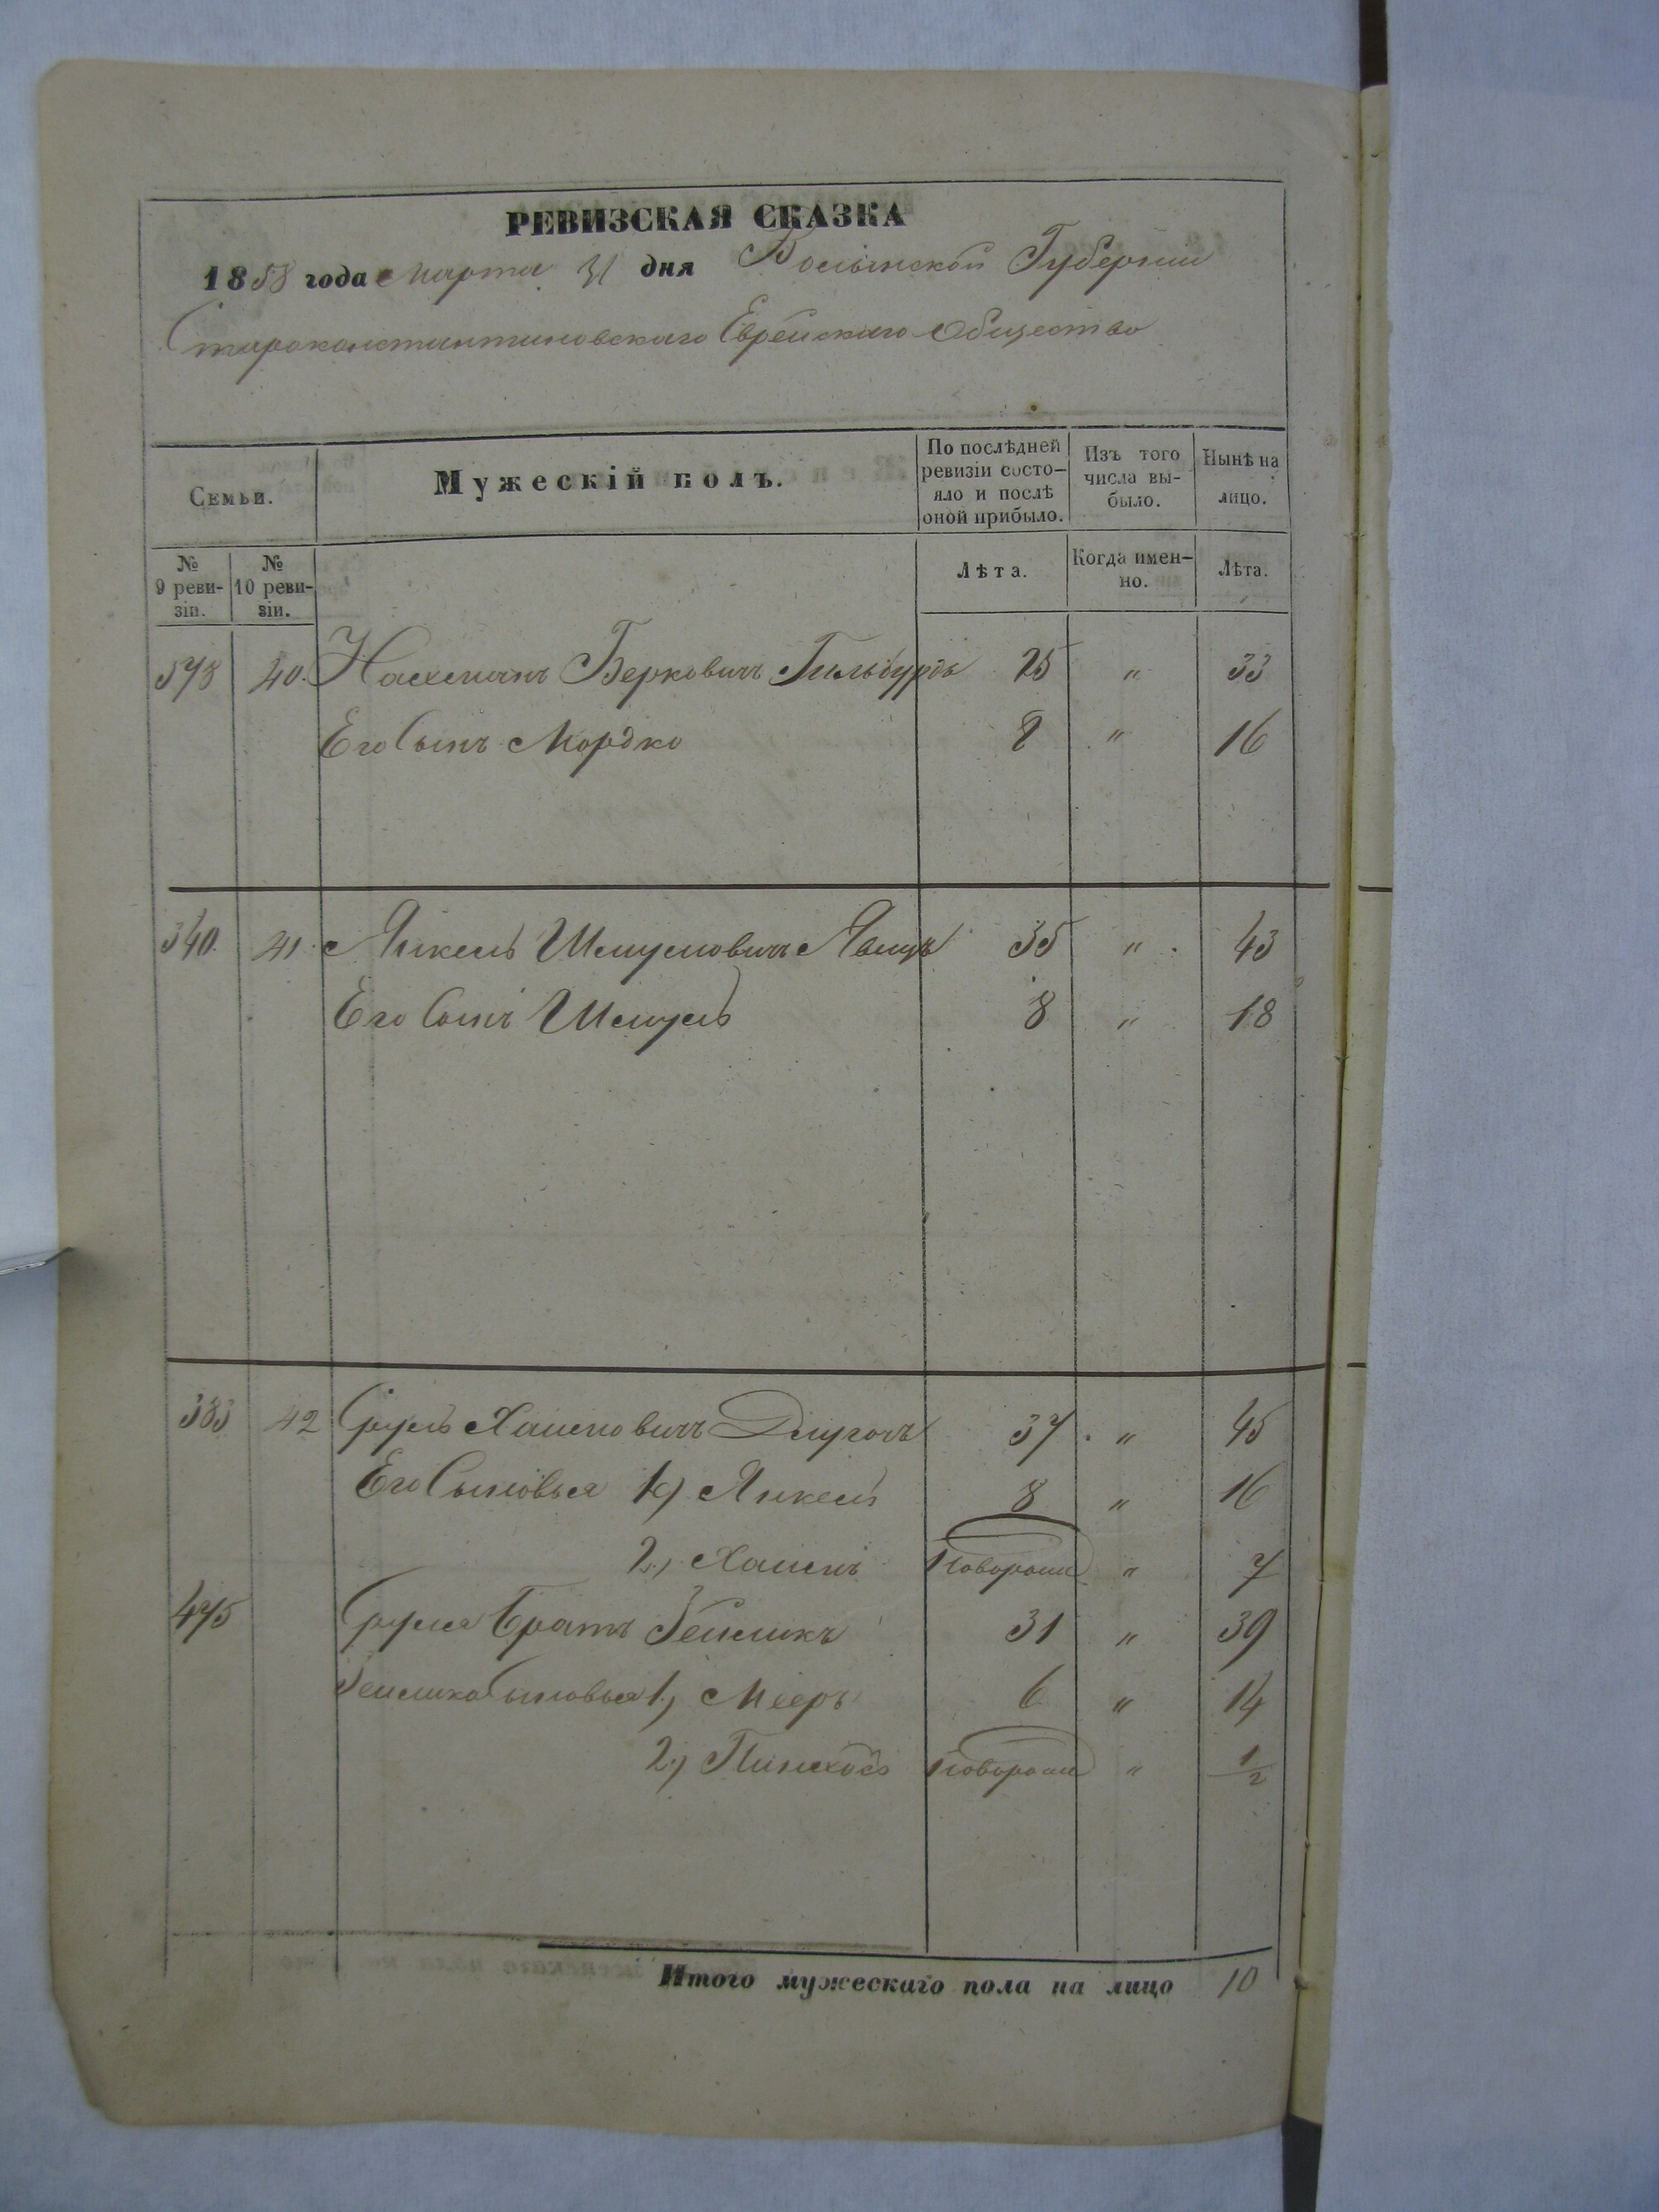 РЕВИЗСКАЯ СКАЗКА
1858 года Марта 31 дня Волынской Губернии
Староконстантиновскаго Еврейскаго Общества
Семьи.
Мужескій полъ.
По послѣдней ревизіи состо-яло и послѣ оной прибыло.
Изъ того числа вы-было.
Нынѣ на лицо.
№ 9 реви-зіи.
№ 10 реви-зіи.
Лѣта.
Когда имен-но.
Лѣта.
578 40. Нахманъ Берковичъ Гильбурдъ 25 " 33
Его Сынъ Мордко 8 " 16
340. 41. Янкель Шмулевичъ 35 " 43
Его Сынъ Шмуль 8 " 18
383 42 Сруль Хаимовичъ Длугачъ 37 " 45
Его Сыновья 1) Янкель 8 " 16
2) Хаимъ Новорош " 7
475 Сруля Братъ Зейликъ 31 " 39
Зейлика Сыновья 1) Мееръ 6 " 14
2) Пинхосъ Новорош " 1/2
Итого мужескаго пола на лицо 10